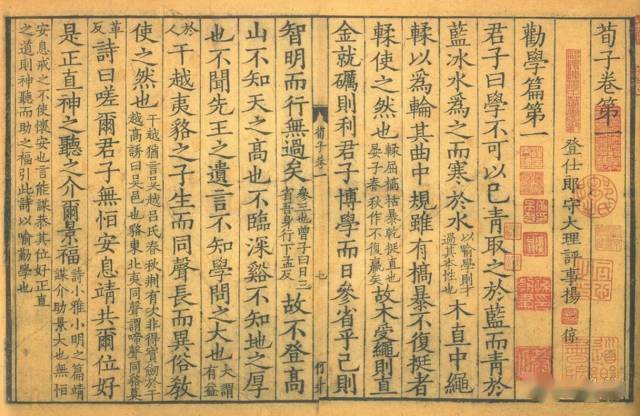 荀子卷第一
登仕郎守大理評事楊 倞
勸學篇第一
君子曰學不可以已青取之於藍而青於
藍冰水為之而寒於水以喻學則才過其本性也木直中繩
輮以為輪其曲中規雖有槁暴不復挺者
輮使之然也輮屈槁枯暴乾挺直也晏子春秋作不復贏矣故木受繩則直
金就礪則利君子博學而日參省乎己則
荀子卷一
智明而行無過矣參三也曾子曰日三省吾身行下孟反故不登高
山不知天之高也不臨深谿不知地之厚
也不聞先王之遺言不知學問之大也大謂有益
於人干越夷貉之子生而同聲長而異俗教
使之然也干越猶言吳越呂氏春秋荊有次非得寶劒於干越高誘曰吳邑也貉東北夷同聲謂啼聲同貉莫
革反詩曰嗟爾君子無恒安息靖共爾位好
是正直神之聽之介爾景福詩小雅小明之篇靖謀介助景大也無恒
安息戒之不使懷安也言能謀恭其位好正直之道則神聽而助之福引此詩以喻勤學也